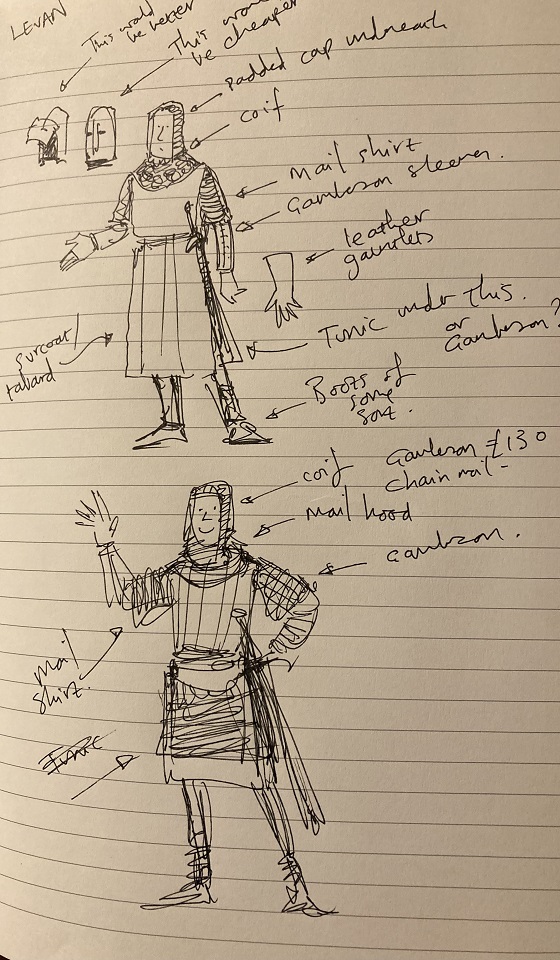 LEVAN
This would
be better
This
be cheaper
padded cap underneath
coif
Mail shirt
Gambeson sleeves.
leather
gauntlets
Tunic under this.
or
Gambeson?
surcoat/
tabard
Boots of
some
sort.
coif
Gambeson £130
chain mail -
mail hood
gambeson.
Mail
shirt.